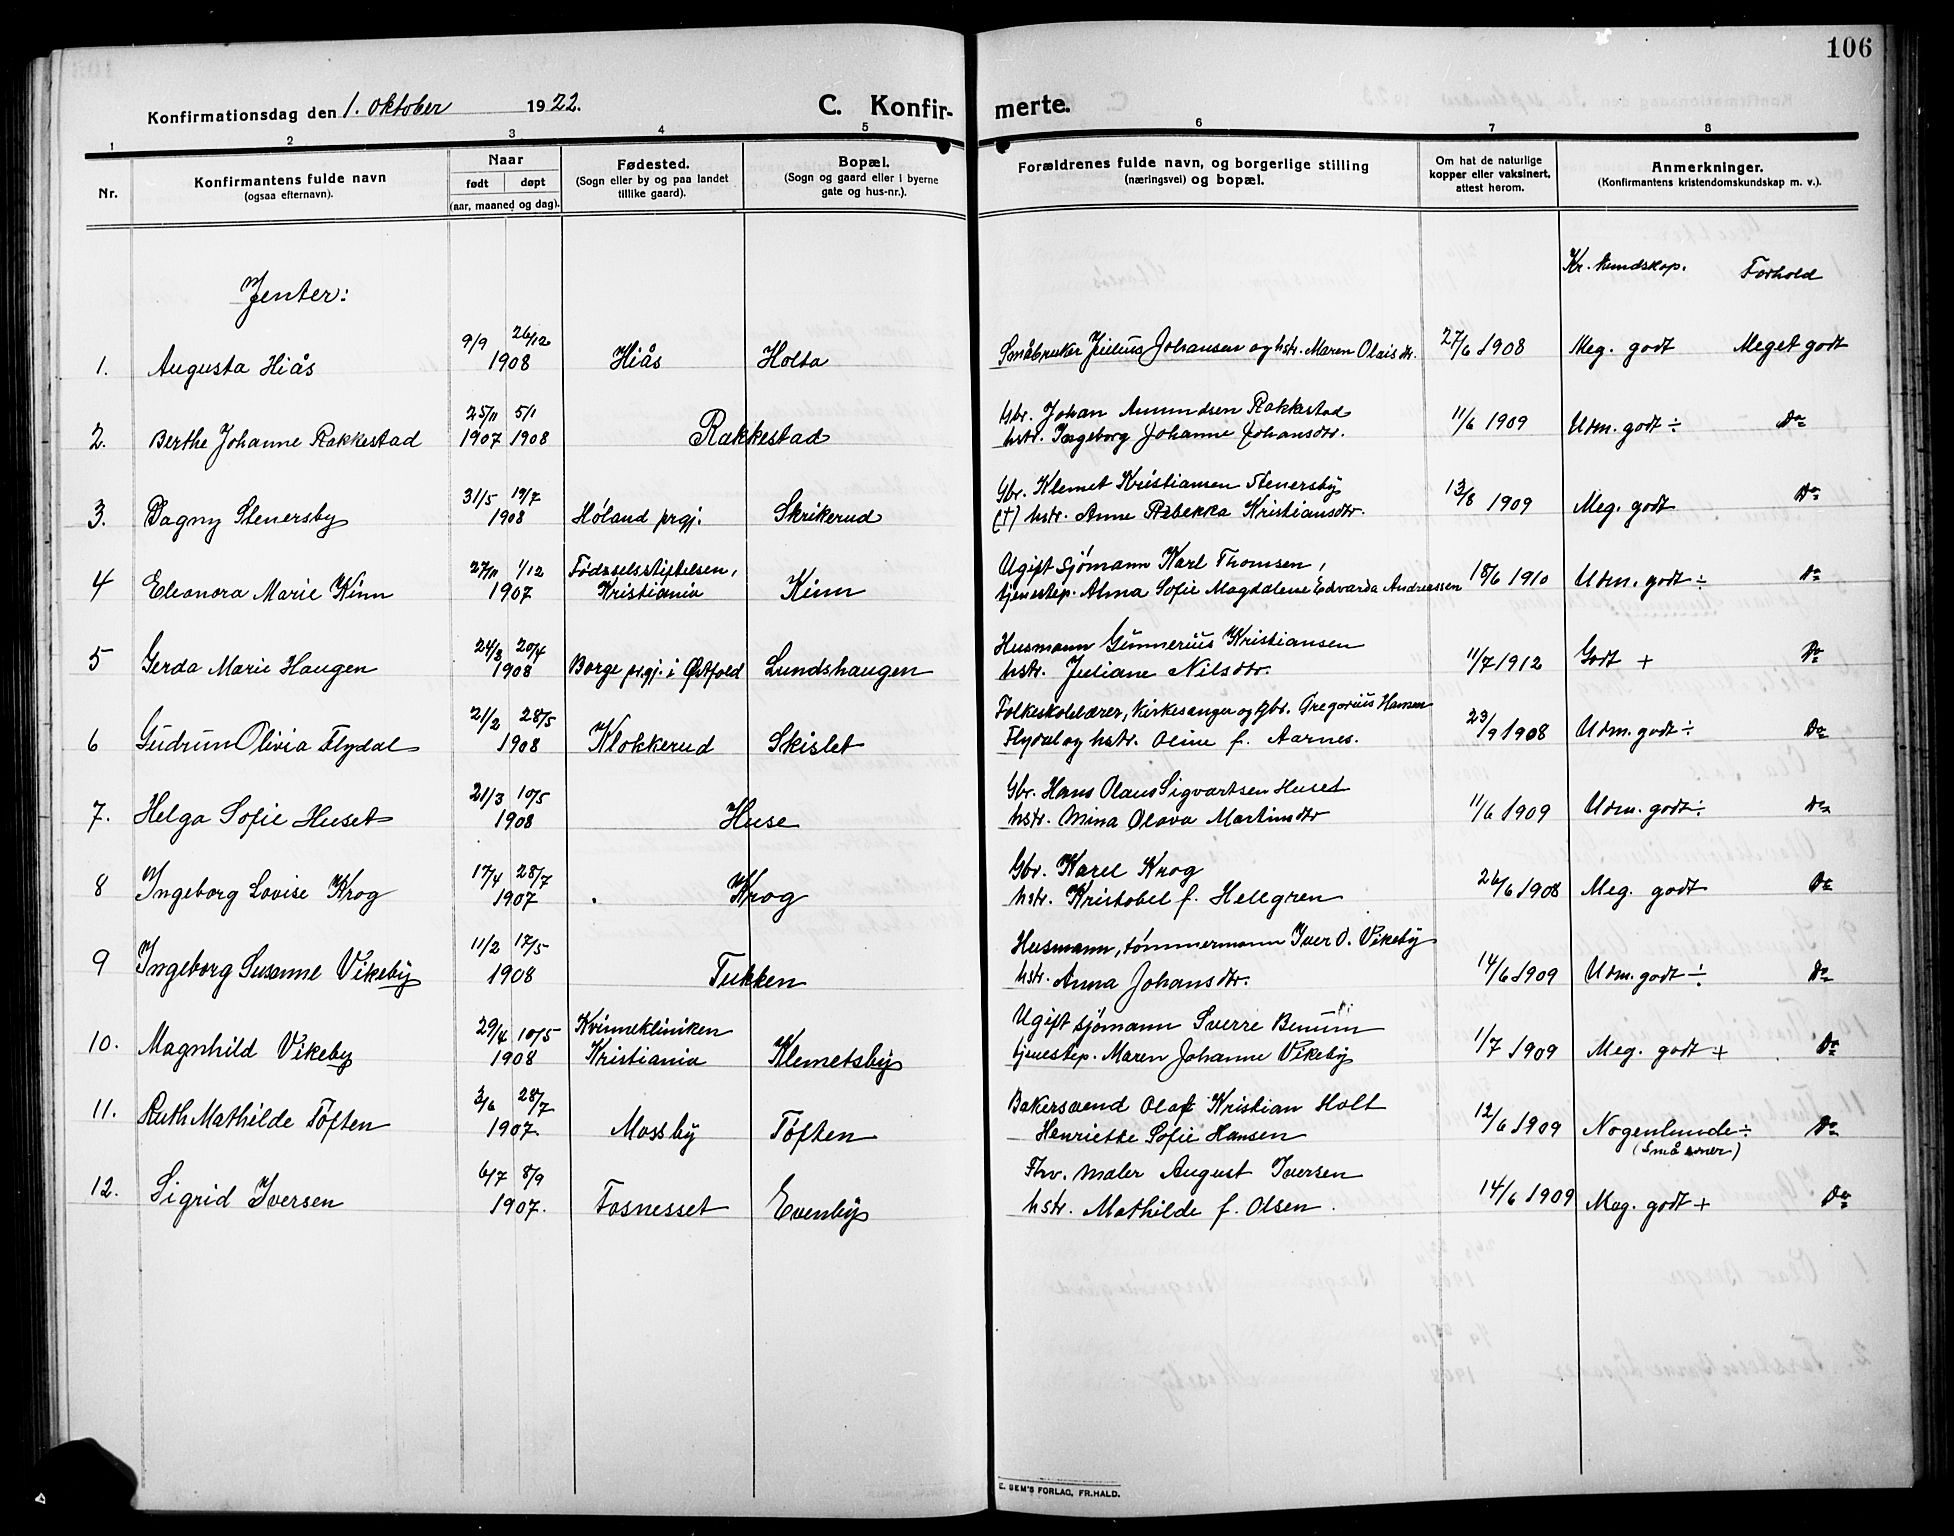 106
Konfirmationsdag den 1. oktober 1922.
C. Konfirmerte.
1 2 3 4 5 6 7 8
Nr.
Konfirmantens fulde navn
(ogsaa efternavn).
Naar
født døpt
(aar, maaned og dag).
Fødested.
(Sogn eller by og paa landet
tillike gaard).
Bopæl.
(Sogn og gaard eller i byerne
gate og hus-nr.).
Forældrenes fulde navn, og borgerlige stilling
(næringsvei) og bopæl.
Om hat de naturlige
kopper eller vaksinert,
attest herom.
Anmerkninger.
(Konfirmantens kristendomskundskap m. v.).
Jenter:
Kr. kundskap. Forhold
1. Augusta Hiås 9/9 26/12 1908 Hiås Holta Småbruker Julius Johansen og hstr. Maren Olaisdtr. 27/6 1908 Meg. godt Meget godt
2. Berthe Johanne Rakkestad 25/11 1907 5/1 1908 Rakkestad Gbr. Johan Amundsen Rakkestad
hstr. Ingeborg Johanne Johansdtr. 11/6 1909 Udm. godt ÷ Do
3. Dagny Stenersby 31/5 19/7 1908 Høland prgj. Skrikerud Gbr. Klemet Kristiansen Stenersby
(†) hstr. Anne Rebekka Kristiansdtr. 13/8 1909 Meg. godt Do
4 Eleonora Marie Kinn 27/11 1/12 1907 Fødselsstiftelsen,
Kristiania Kinn Ugift sjømann Karl Thomsen,
tjenestep. Alma Sofie Magdalene Edvarda Andreassen 18/6 1910 Udm. godt ÷ Do
5 Gerda Marie Haugen 24/3 20/4 1908 Borge prgj. i Østfold Lundshaugen Husmann Gunnerius Kristiansen
hstr. Juliane Nilsdtr. 11/7 1912 Godt + Do
6 Gudrun Olivia Flydal 21/2 28/5 1908 Klokkerud Skislet Folkeskolelærer, kirkesanger og gbr. Gregorius Hansen
Flydal og hstr. Oline f. Aarnes. 23/9 1908 Udm. godt ÷ Do
7. Helga Sofie Huset 21/3 10/5 1908 Huse Gbr. Hans Olaus Sigvartsen Huset
hstr. Mina Olava Martinsdtr 11/6 1909 Udm. godt ÷ Do
8 Ingeborg Lovise Krog 17/4 28/7 1907 Krog Gbr. Karel Krog
hstr. Kristobel f. Hellgren 26/6 1908 Meg. godt Do
9 Ingeborg Susanne Vikeby 11/2 17/5 1908 Tukken Husmann, tømmermann Iver O. Vikeby
hstr. Anna Johansdtr. 14/6 1909 Udm. godt ÷ Do
10. Magnhild Vikeby 29/4 10/5 1908 Kvinnekliniken
Kristiania Klemetsby Ugift sjømann Sverre
tjenestep. Maren Johanne Vikeby 1/7 1909 Meg. godt + Do
11. Ruth Mathilde Tøften 3/6 28/7 1907. Mossby Tøften Bakersvend Olaf Kristian Holt
Henriette Sofie Hansen 12/6 1909 Nogenlunde ÷
(små evner) Do
12. Sigrid Iversen 6/7 8/9 1907. Fosnesset Evenby Fhv. maler August Iversen
hstr. Mathilde f. Olsen. 14/6 1909 Meg. godt + Do
E. SEM'S FORLAG, FR.HALD.